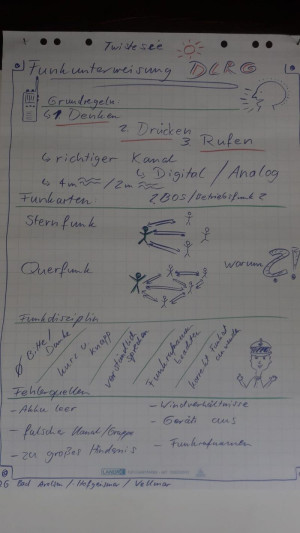 Twistesee
Funkunterweisung DLRG
Grundregeln
↳ 1 Denken
2. Drücken
3. Rufen
↳ richtiger Kanal
↳ Digital / Analog
↳ 4m / 2m
Funkarten
2BOS/Betriebsfunk 2
Sternfunk
Querfunk
warum
Funkdisziplin
Ø Bitte/
Danke
kurz u.
knapp
verständlich
sprechen
Funkrufnamen
beachten
Fehlerquellen
- Akku leer
- falscher Kanal/Gruppe
- zu großes Hindernis
- Windverhältnisse
- Gerät aus
- Funkrufnamen
OG Bad Arolsen / Hofgeismar / Vellmar